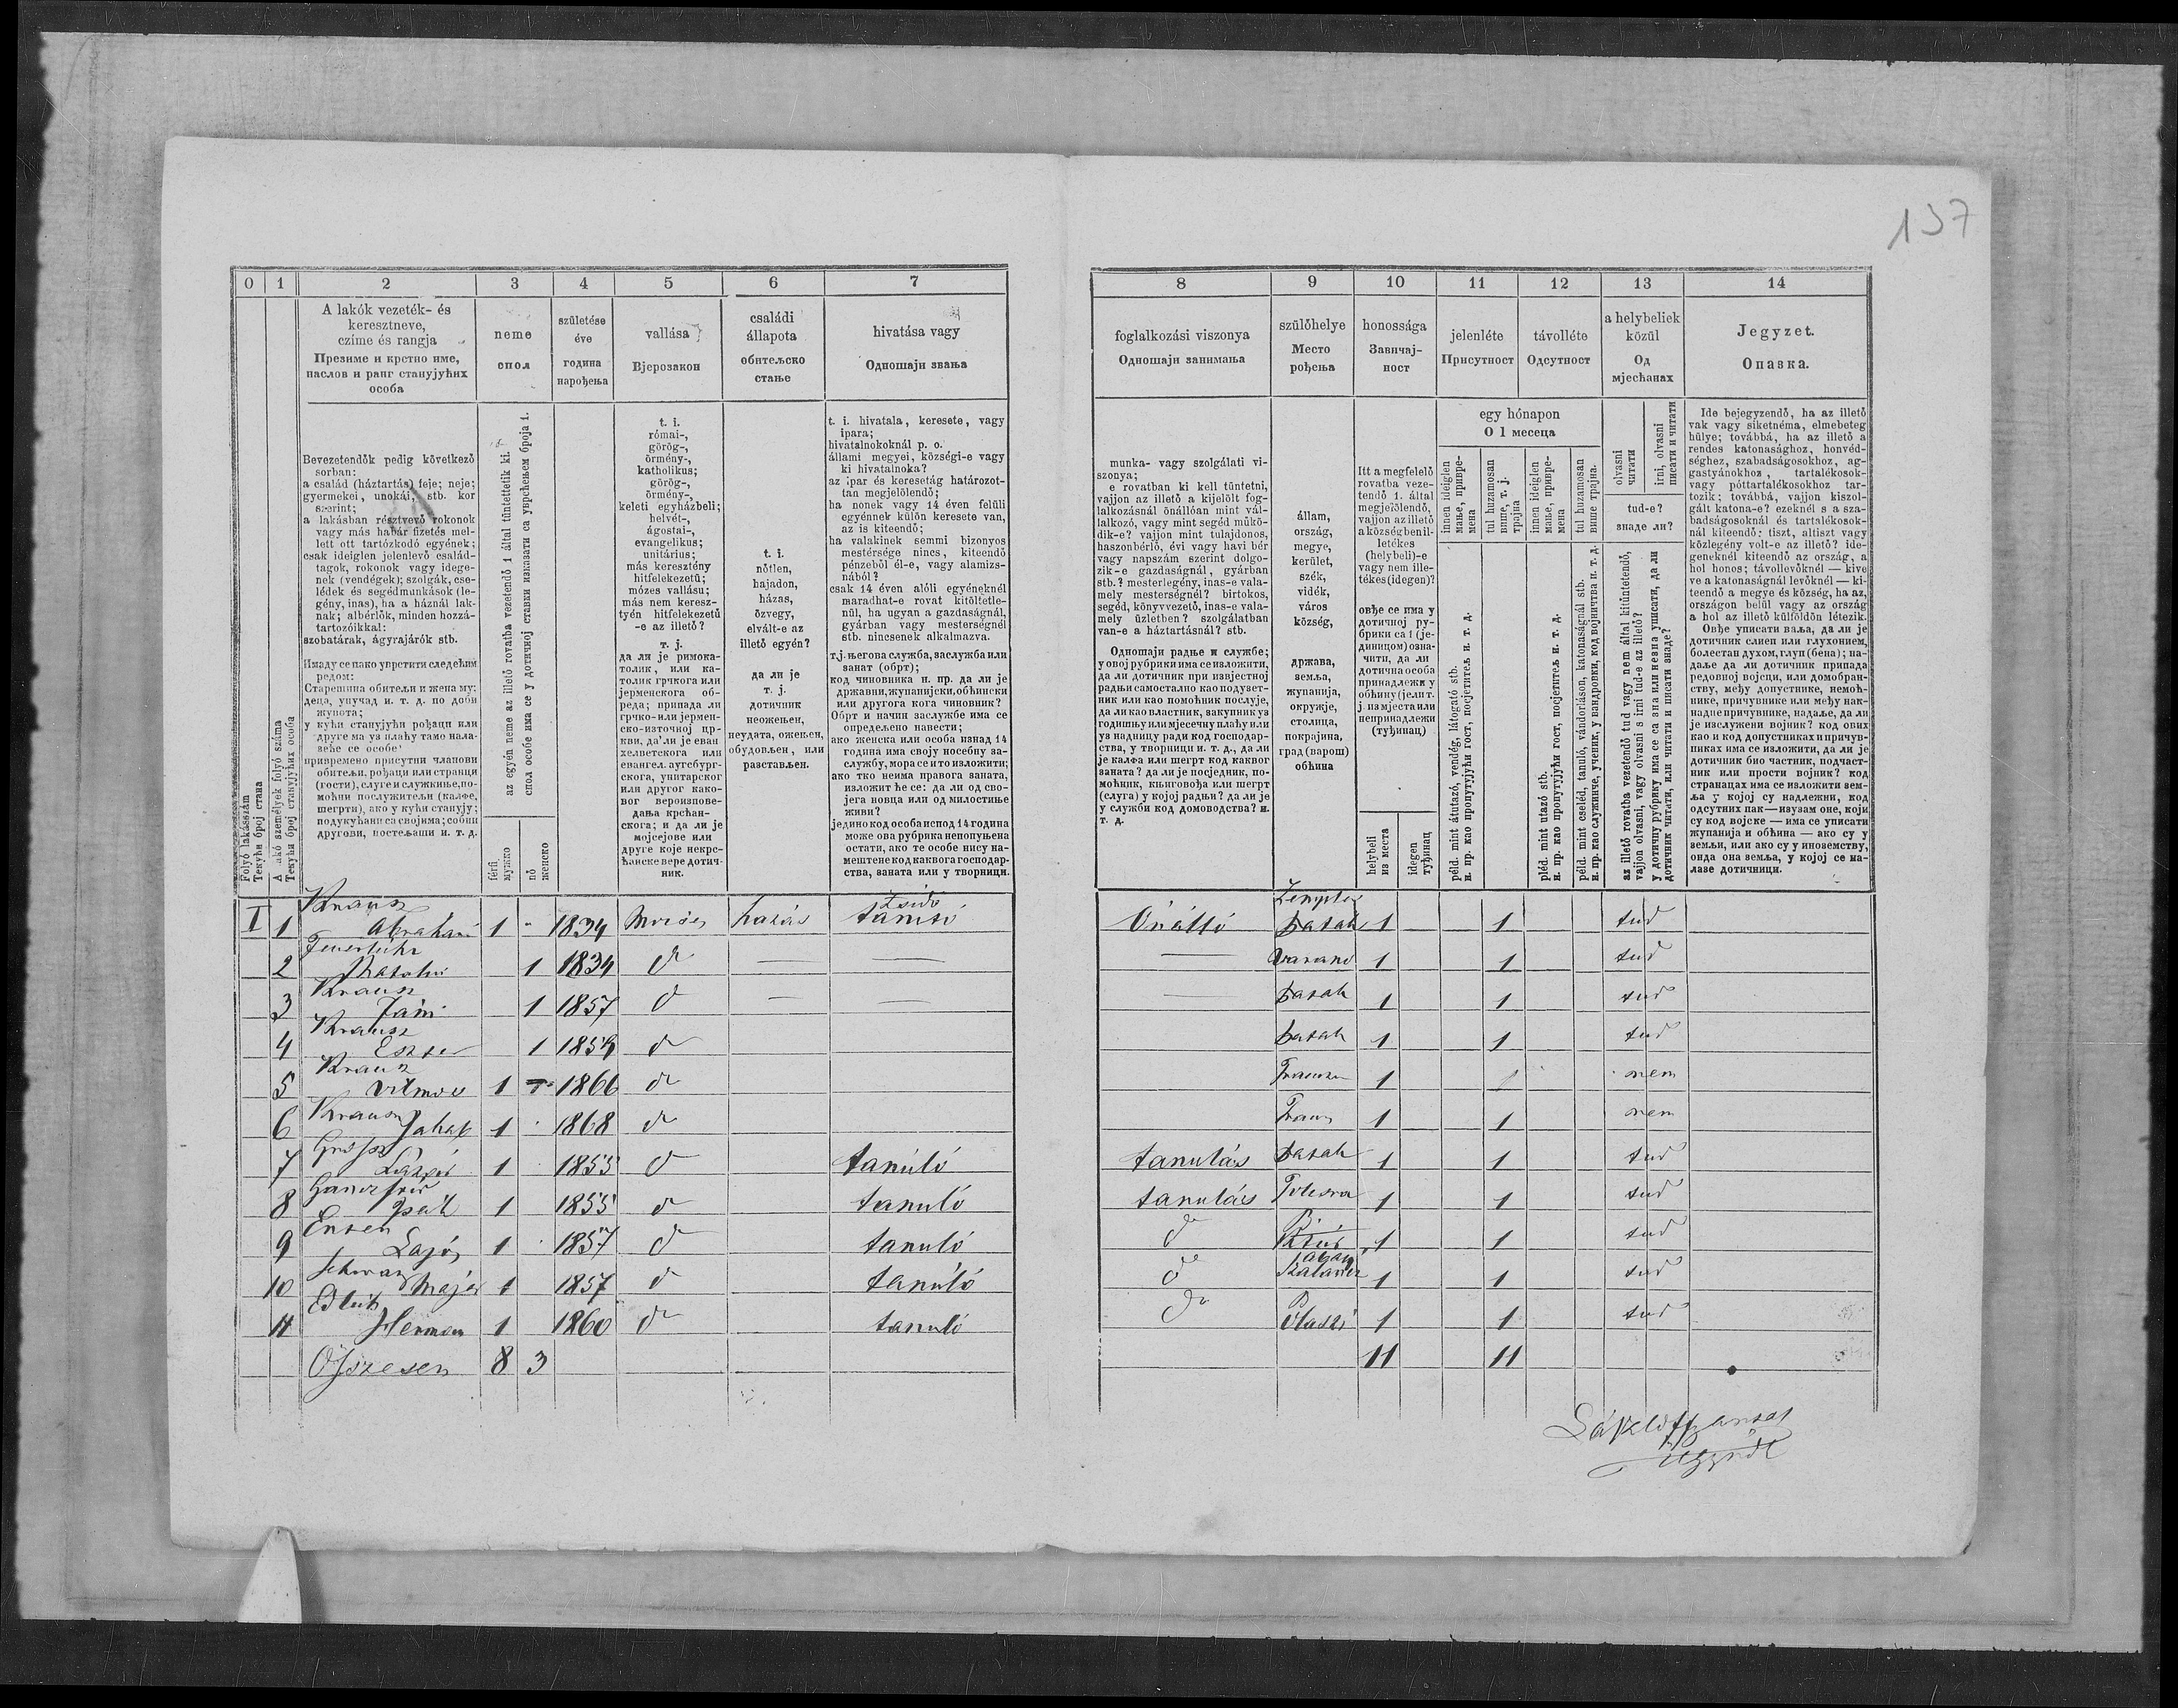 137
0 1 2 3 4 5 6 7
A lakók vezeték- és
keresztneve,
czíme és rangja
Презиме и крстно име,
наслов и ранг станујућих
особа
neme
спол
születése
éve
година
нарођења
vallása
Вјерозакон
családi
állapota
обитељско
стање
hivatása vagy
Одношаји звања
Folyó lakásszám
Текући број стана
A lakó személyek folyó száma
Текући број станујућих особа
Bevezetendők pedig következő
sorban:
a család (háztartás) feje; neje;
gyermekei, unokái, stb. kor
szerint;
a lakásban résztvevő rokonok
vagy más habár fizetés mel-
lett ott tartózkodó egyének;
csak ideiglen jelenlevő család-
tagok, rokonok vagy idege-
nek (vendégek); szolgák, cse-
lédek és segédmunkások (le-
gény, inas), ha a háznál lak-
nak; albérlők, minden hozzá-
tartozóikkal:
szobatárak, ágyrajárók stb.
Имаду се пако уврстити следећим
редом:
Старешина обитељи и жена му;
деца, унучад и. т. д. по доби
живота;
у кући станујући рођаци или
друге ма уз плаћу тамо нала-
зеће се особе;
привремено присутни чланови
обитељи, рођаци или странци
(гости), слуге и служкиње, по-
моћни послужитељи (калфе,
шегрти), ако у кући станују;
подукућани са својима; собни
другови, постељаши и. т. д.
az egyén neme az illető rovatba vezetendő 1 által tüntettetik ki.
спол особе има се у дотичној ставки изказати са уврсћењем броја 1.
férfi
мужко
nő
женско
t. i.
római-,
görög-,
örmény-,
katholikus;
görög-,
örmény-,
keleti egyházbeli;
helvét-,
ágostai-,
evangelikus;
unitárius;
más keresztény
hitfelekezetű;
mózes vallásu;
más nem keresz-
tyén hitfelekezetű
-e az illető?
т. ј.
да ли је римока-
толик, или ка-
толик грчкога или
јерменскога об-
реда; припада ли
грчко- или јермен-
ско-източној цр-
кви, да'ли је еван
хелветскога или
евангел. аугсбург-
скога, унитарског
или другог како-
вог вероизпове-
дања крсћан-
скога; и да ли је
мојсејове или
друге које некрс-
ћанске вере дотич-
ник.
t. i.
nőtlen,
hajadon,
házas,
özvegy,
elvált-e az
illető egyén?
да ли је
т. ј.
дотичник
неожењен,
неудата, ожењен,
обудовљен, или
разстављен.
t. i. hivatala, keresete, vagy
ipara;
hivatalnokoknál p. o.
állami megyei, községi-e vagy
ki hivatalnoka?
az ipar és keresetág határozot-
tan megjelölendő;
ha nonek vagy 14 éven felüli
egyénnek külön keresete van,
az is kiteendő;
ha valakinek semmi bizonyos
mestersége nincs, kiteendő
pénzeből él-e, vagy alamizs-
nából?
csak 14 éven alóli egyéneknél
maradhat-e rovat kitöltetle-
nül, ha ugyan a gazdaságnál,
gyárban vagy mesterségnél
stb. nincsenek alkalmazva.
т.ј. његова служба, заслужба или
занат (обрт);
код чиновника н. пр. да ли је
државни, жупанијски, обћински
или другога кога чиновник?
Обрт и начин заслужбе има се
определено навести;
ако женска или особа изнад 14
година има своју посебну за-
службу, мора се и то изложити;
ако тко неима правога заната,
изложит ће се: да ли од сво-
јега новца или од милостиње
живи?
једино код особа испод 14 година
може ова рубрика непопуњена
остати, ако те особе нису на-
мештене код каквога господар-
ства, заната или у творници.
I 1 Krausz Abrahám 1 - 1834 Mozses házás Zsidó tánitó
2 1 1834 d — —
3 Krausz Jáni 1 1857 d — —
4 Krausz Eszter 1 1859 d
5 Krausz Vilmos 1 1866 d
6 Krausz Jakab 1 1868 d
7 1 1855 d tanúló
8 1 1855 d tanuló
9 Lajos 1 1857 d tanuló
10 Májer 1 1857 d tanúló
11 Herman 1 1860 d tanuló
Öszszesen 8 3
8 9 10 11 12 13 14
foglalkozási viszonya
Одношаји занимања
szülőhelye
Место
рођења
honossága
Завичај-
ност
jelenléte
Присутност
távolléte
Одсутност
a helybeliek
közül
Од
мјесћанах
Jegyzet.
Опазка.
munka- vagy szolgálati vi-
szonya;
e rovatban ki kell tüntetni,
vajjon az illető a kijelölt fog-
lalkozásnál önállóan mint vál-
lalkozó, vagy mint segéd műkö-
dik-e? vajjon mint tulajdonos,
haszonbérlő, évi vagy havi bér
vagy napszám szerint dolgo-
zik-e gazdaságnál, gyárban
stb.? mesterlegény, inas-e vala-
mely mesterségnél? birtokos,
segéd, könyvvezető, inas-e vala-
mely üzletben? szolgálatban
van-e a háztartásnál? stb.
Одношаји радње и службе;
у овој рубрики има се изложити,
да ли дотичник при извјестној
радњи самостално као подузет-
ник или као помоћник послује,
да ли као властник, закупник уз
годишњу или мјесечну плаћу или
уз надницу ради код господар-
ства, у творници и. т. д., да ли
је калфа или шегрт код каквог
заната? да ли је посједник, по-
моћник, књиговођа или шегрт
(слуга) у којој радњи? да ли је
у служби код домоводства? и.
т. д.
állam,
ország,
megye,
kerület,
szék,
vidék,
város
község,
држава,
земља,
жупанија,
окружје,
столица,
покрајина,
град (варош)
обћина
Itt a megfelelő
rovatba veze-
tendő 1. által
megjelölendő,
vajjon az illető
a községben il-
letékes
(helybeli)-e
vagy nem ille-
tékes (idegen)?
овђе се има у
дотичној ру-
брики са 1 (је-
диницом) озна-
чити, да ли
дотична особа
принадлежи у
обћину (јели т.
ј. из места или
непринадлежи
(туђинац)
helybeli
из места
idegen
туђинац
egy hónapon
О 1 месеца
innen ideiglen
мање, привре-
мена
tul huzamosan
више, т. ј.
трајна
innen ideiglen
мање, привре-
мена
tul huzamosan
више трајна.
péld. mint átutazó, vendég, látogató stb.
н. пр. као пропутујући гост, посјетитељ и. т. д.
péld. mint utazó stb.
н. пр. као пропутујући гост, посјетитељ и. т. д.
péld. mint cseléd, tanuló, vándorláson, katonaságnál stb.
н. пр. као служинче, ученик, у вандровки, код војничтва и. т. д.
olvasni
читати
irni, olvasni
писати и читати
tud-e?
знаде ли?
az illető rovatba vezetendő tud vagy nem által kitüntetendő,
vajjon olvasni, vagy olvasni s irni tud-e az illető?
у дотичну рубрику има се са зна или незна уписати, да ли
дотичник читати, или читати и писати знаде?
Ide bejegyzendő, ha az illető
vak vagy siketnéma, elmebeteg
hülye; továbbá, ha az illető a
rendes katonasághoz, honvéd-
séghez, szabadságosokhoz, ag-
gastyánokhoz, tartalékosok-
vagy póttartalékosokhoz tar-
tozik; továbbá, vajjon kiszol-
gált katona-e? ezeknél s a sza-
badságosoknál és tartalékosok-
nál kiteendő: tiszt, altiszt vagy
közlegény volt-e az illető? ide-
geneknél kiteendő az ország, a
hol honos; távollevőknél — kive
ve a katonaságnál levőknél — ki-
teendő a megye és község, ha az
országon belül vagy az ország
a hol az illető külföldön létezik.
Овђе уписати ваља, да ли је
дотичник слиеп или глухонием,
болестан духом, глуп (бена); на-
даље да ли дотичник припада
редовној војсци, или домобран-
ству, међу допустнике, немоћ-
нике, причувнике или међу нак-
надне причувнике, надаље, да ли
је изслужени војник? код ових
као и код допустниках и причув-
никах има се изложити, да ли је
дотичник био частник, подчаст-
ник или прости војник? код
странацах има се изложити зем-
ља у којој су надлежни, код
одсутних пак — изузам оне, који
су код војске — има се уписати
жупанија и обћина — ако су у
земљи, или ако су у иноземству,
онда она земља, у којој се на-
лазе дотичници.
Önálló Zemplén Patak 1 1 tud
— Varano 1 1 tud
— Patak 1 1 tud
Patak 1 1 tud
1 1 nem
1 1 nem
tanulás Patak 1 1 tud
tanulás Tolcsva 1 1 tud
d 1 1 tud
d 1 1 tud
d Olaszi 1 1 tud
11 11